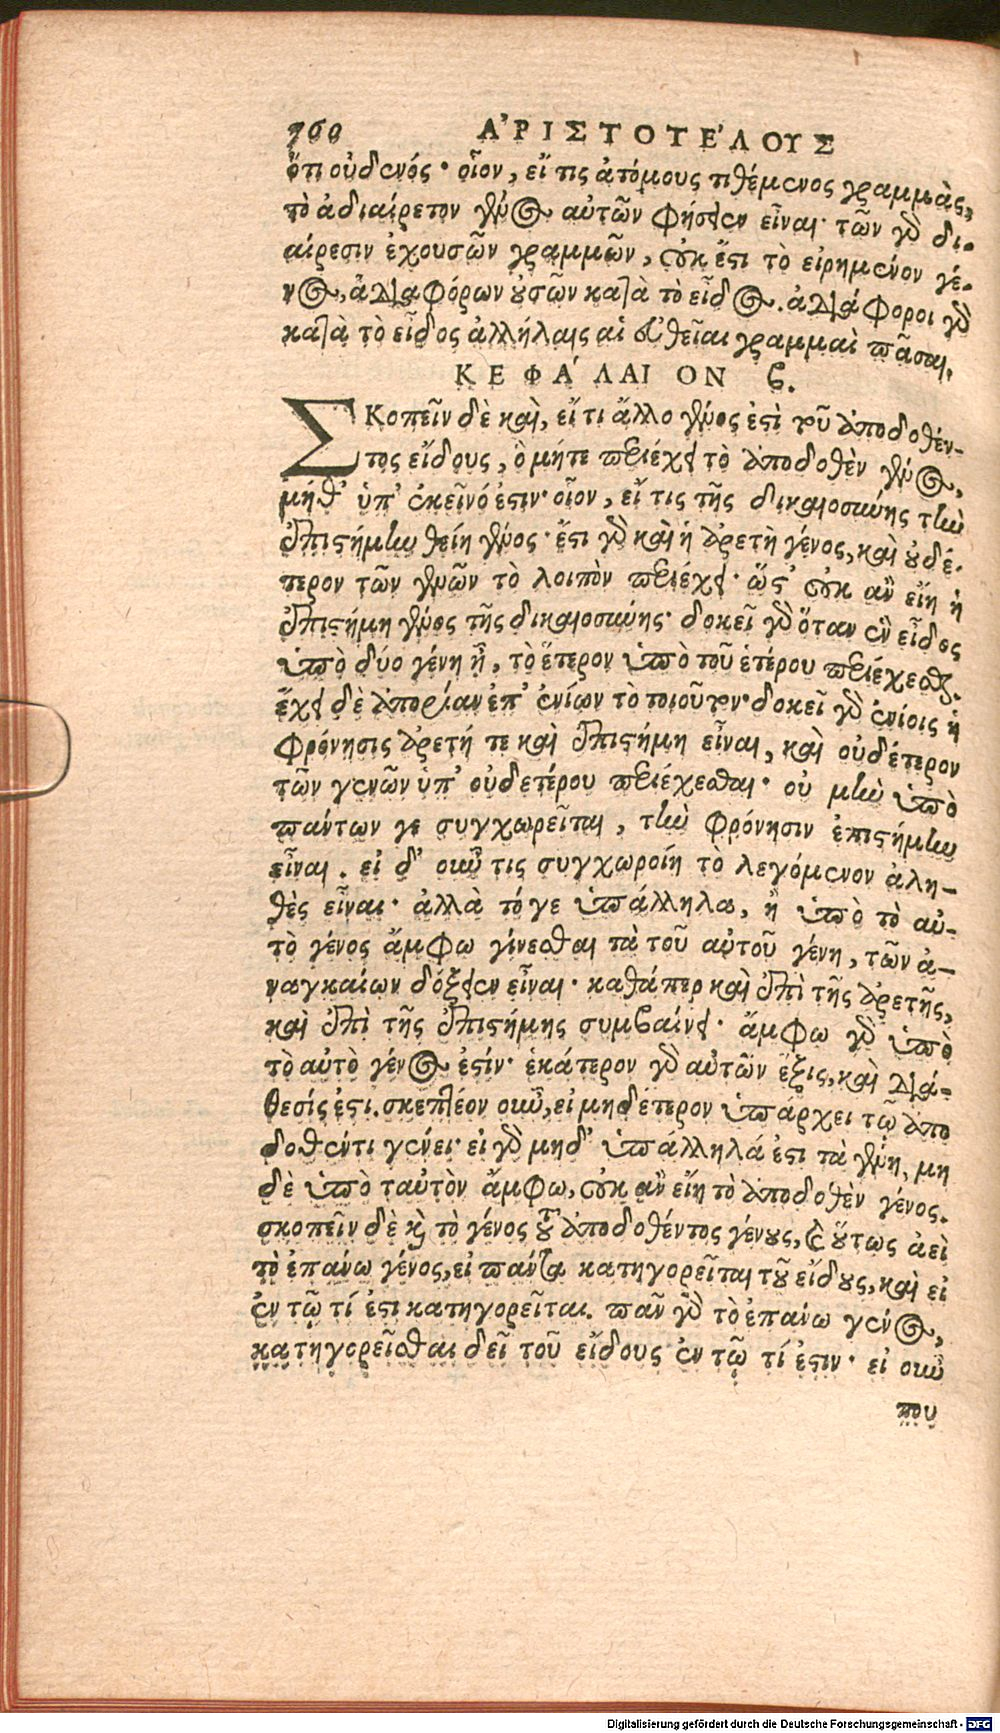 760 ἈΡΙΣΤΟΤΈΛΟΥΣ
ὅτι οὐδενός· οἷον, εἴ τις ἀτόμους τιθέμενος γραμμὰς,
τὸ ἀδιαίρετον γένος αὐτῶν φήσειεν εἶναι· τῶν γὸ δι-
αίρεσιν ἐχουσῶν γραμμῶν, οὐκ ἔστι τὸ εἰρημένον γέ-
νος, ἀδιαφόρων οὐσῶν κατὰ τὸ εἶδος. ἀδιάφοροι γὸ
κατὰ τὸ εἶδος ἀλλήλαις αἱ εὐθεῖαι γραμμαὶ πᾶσαι.
ΚΕΦΆΛΑΙΟΝ ϛ.
Σκοπεῖν δὲ καὶ, εἴ τι ἄλλο γένος ἐστὶ τοῦ ἀποδοθέν-
τος εἴδους, ὃ μήτε περιέχει τὸ ἀποδοθὲν γένος,
μήθ' ὑπ' ἐκεῖνό ἐστιν· οἷον, εἴ τις τῆς δικαιοσύνης τὴν
ἐπιστήμην θείη γένος· ἔστι γὸ καὶ ἡ ἀρετὴ γένος, καὶ οὐδέ-
τερον τῶν γενῶν τὸ λοιπὸν περιέχει· ὥστ' οὐκ ἂν εἴη ἡ
ἐπιστήμη γένος τῆς δικαιοσύνης· δοκεῖ γὸ ὅταν ἓν εἶδος
ὑπὸ δύο γένη ᾖ, τὸ ἕτερον ὑπὸ τοῦ ἑτέρου περιέχεσθαι.
ἔχει δὲ ἀπορίαν ἐπ' ἐνίων τὸ τοιοῦτον· δοκεῖ γὸ ἐνίοις ἡ
φρόνησις ἀρετή τε καὶ ἐπιστήμη εἶναι, καὶ οὐδέτερον
τῶν γενῶν ὑπ' οὐδετέρου περιέχεσθαι· οὐ μὴν ὑπὸ
πάντων γε συγχωρεῖται, τὴν φρόνησιν ἐπιστήμην
εἶναι. εἰ δ' οὖν τις συγχωροίη τὸ λεγόμενον ἀλη-
θὲς εἶναι· ἀλλὰ τό γε ὑπάλληλα, ἢ ὑπὸ τὸ αὐ-
τὸ γένος ἄμφω γίνεσθαι τὰ τοῦ αὐτοῦ γένη, τῶν ἀ-
ναγκαίων δόξειεν εἶναι· καθάπερ καὶ ἐπὶ τῆς ἀρετῆς,
καὶ ἐπὶ τῆς ἐπιστήμης συμβαίνει· ἄμφω γὸ ὑπὸ
τὸ αὐτὸ γένος ἐστίν· ἑκάτερον γὸ αὐτῶν ἕξις, καὶ διά-
θεσίς ἐστι. σκεπτέον οὖν, εἰ μηδέτερον ὑπάρχει τῷ ἀπο
δοθέντι γένει· εἰ γὸ μηδ' ὑπάλληλά ἐστι τὰ γένη, μη
δὲ ὑπὸ ταὐτὸν ἄμφω, οὐκ ἂν εἴη τὸ ἀποδοθὲν γένος.
σκοπεῖν δὲ κὶ τὸ γένος τοῦ ἀποδοθέντος γένους, κὶ οὕτως ἀεὶ
τὸ ἐπάνω γένος, εἰ πάντα κατηγορεῖται τοῦ εἴδους, καὶ εἰ
ἐν τῷ τί ἐστι κατηγορεῖται. πᾶν γὸ τὸ ἐπάνω γένος,
κατηγορεῖσθαι δεῖ τοῦ εἴδους ἐν τῷ τί ἐστιν· εἰ οὖν
που
Digitalisierung gefördert durch die Deutsche Forschungsgemeinschaft - DFG